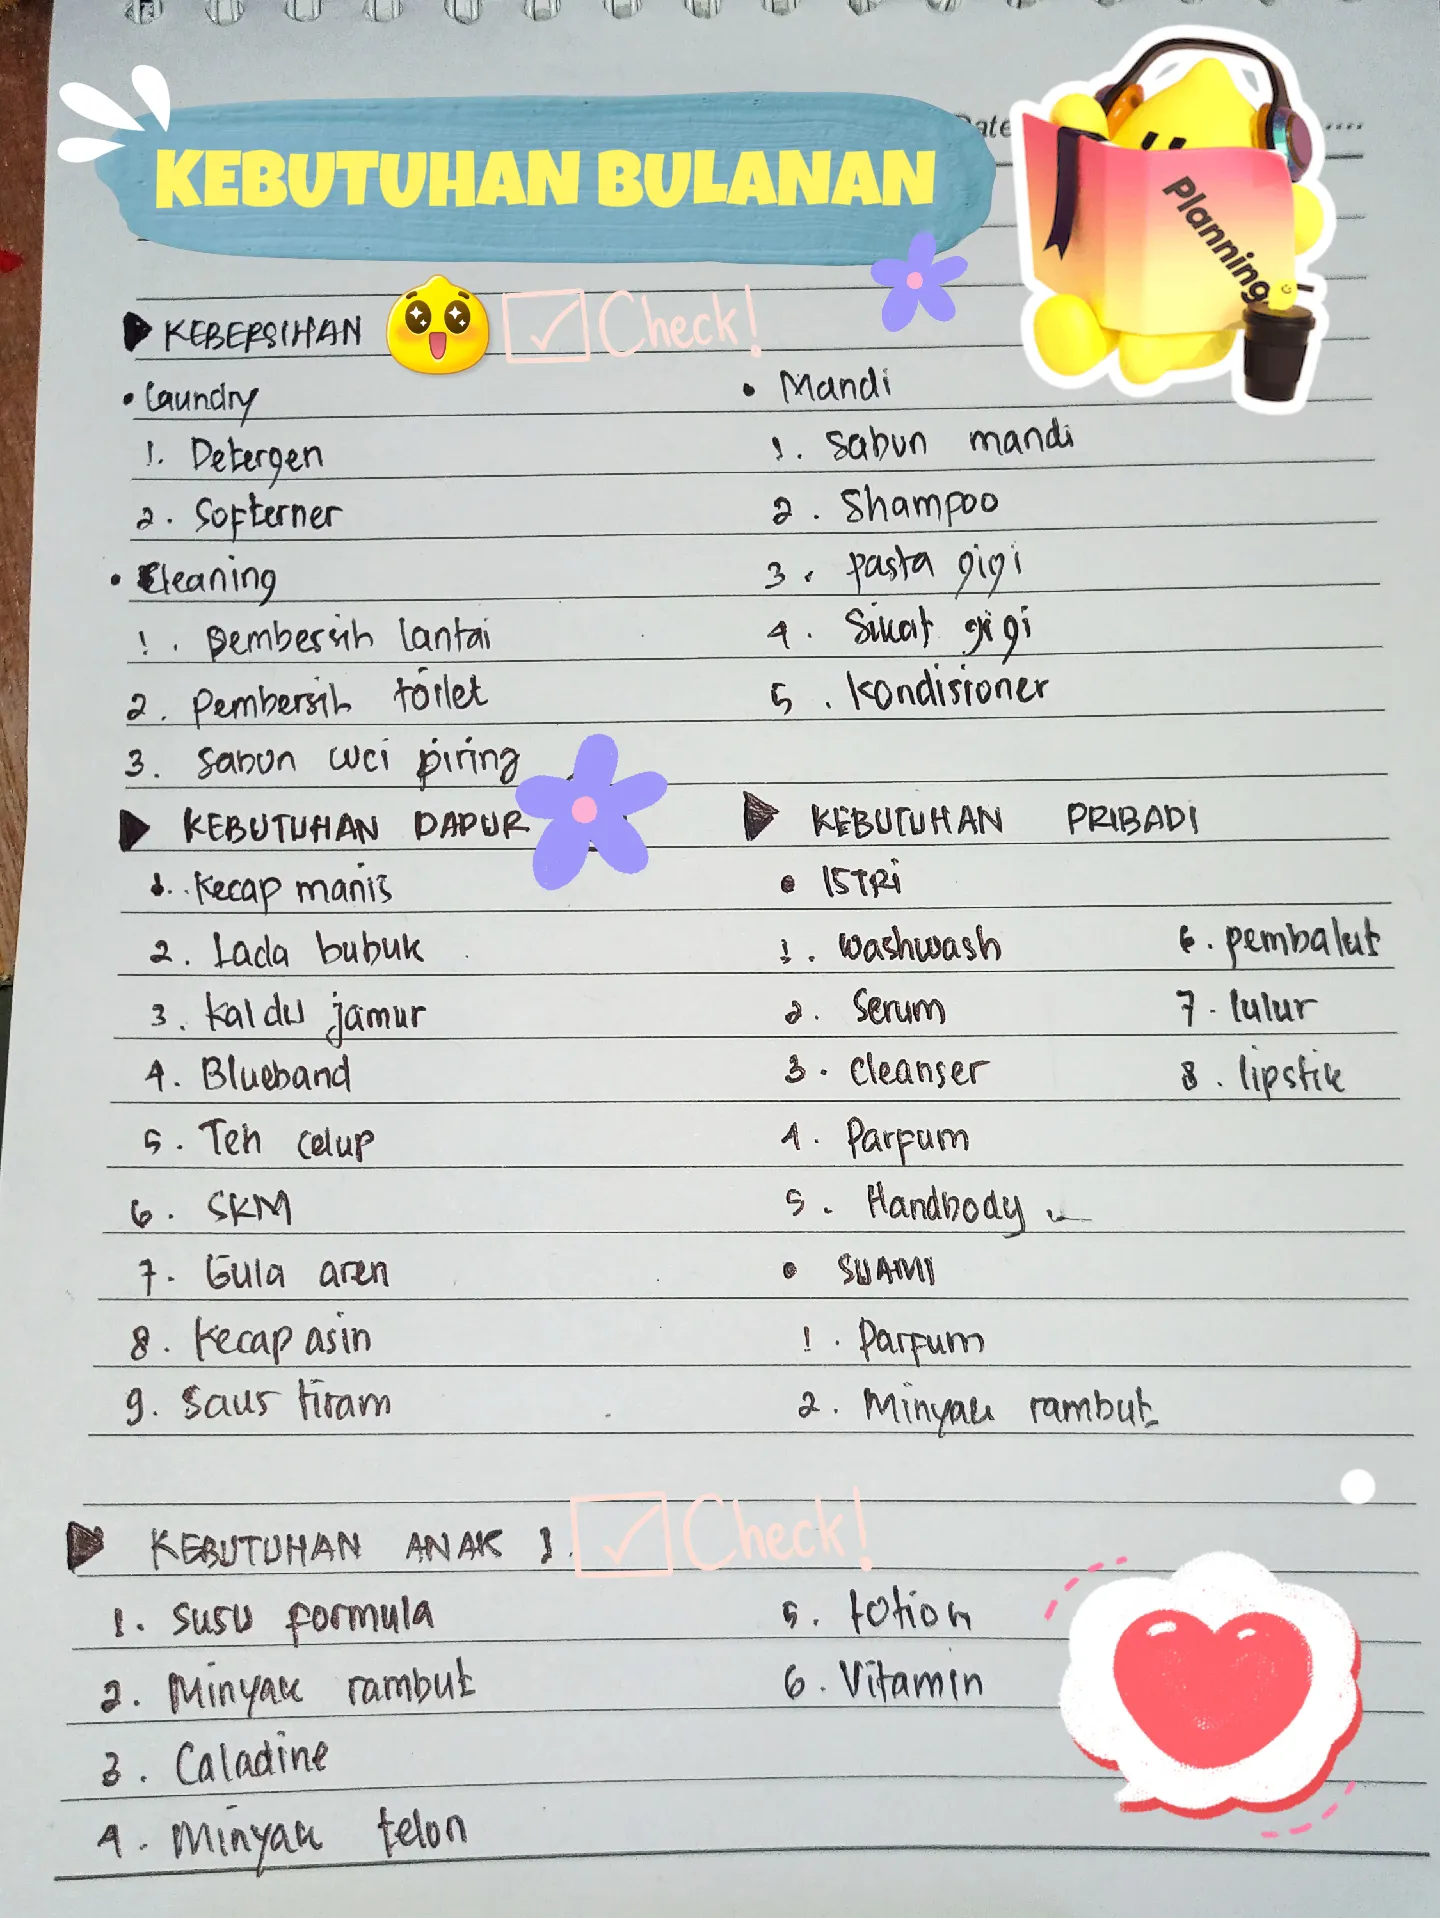 Date
KEBUTUHAN BULANAN
Planning
KEBERSIHAN
Check!
• Laundry
1. Detergen
2. Softerner
• Cleaning
1. pembersih lantai
2. pembersih toilet
3. sabun cuci piring
• Mandi
1. sabun mandi
2. Shampoo
3. pasta gigi
4. Sikat gigi
5. kondisioner
KEBUTUHAN DAPUR
1. Kecap manis
2. Lada bubuk
3. kaldu jamur
4. Blueband
5. Teh celup
6. SKM
7. Gula aren
8. kecap asin
9. saus tiram
KEBUTUHAN PRIBADI
• ISTRI
1. washwash
2. Serum
3. cleanser
4. Parfum
5. Handbody
6. pembalut
7. lulur
8. lipstik
• SUAMI
1. Parfum
2. Minyak rambut
KEBUTUHAN ANAK 1.
Check!
1. susu formula
2. Minyak rambut
3. Caladine
4. Minyak telon
5. lotion
6. Vitamin